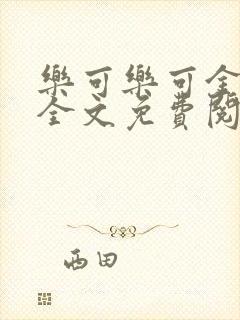 樂可樂可全
全文免費閱
西田